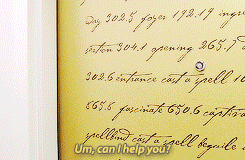 day 302.5 foyer 192.19 ingre
section 304.1 opening 265.7
302.6 entrance cast a spell 10
865.8 fascinate 650.6 captiva
spellbind cast a spell beguile
Um, can I help you?